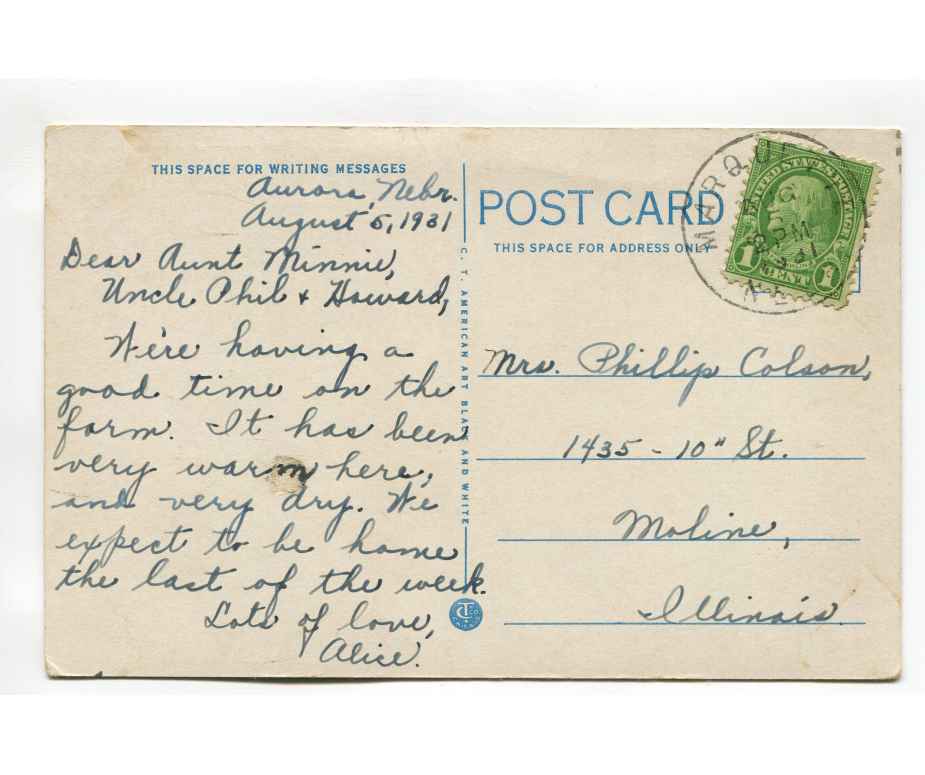 THIS SPACE FOR WRITING MESSAGES
Aurora, Nebr.
August 5, 1931
Dear Aunt Minnie,
Uncle Phil & Howard,
We're having a
good time on the
farm. It has been
very warm here,
and very dry. We
expect to be home
the last of the week.
Lots of love,
Alice.
C. T. AMERICAN ART BLACK AND WHITE
POST CARD
THIS SPACE FOR ADDRESS ONLY
UNITED STATES POSTAGE
1 CENT 1
5
PM
Mrs. Phillip Colson,
1435 - 10" St.
Moline,
Illinois.